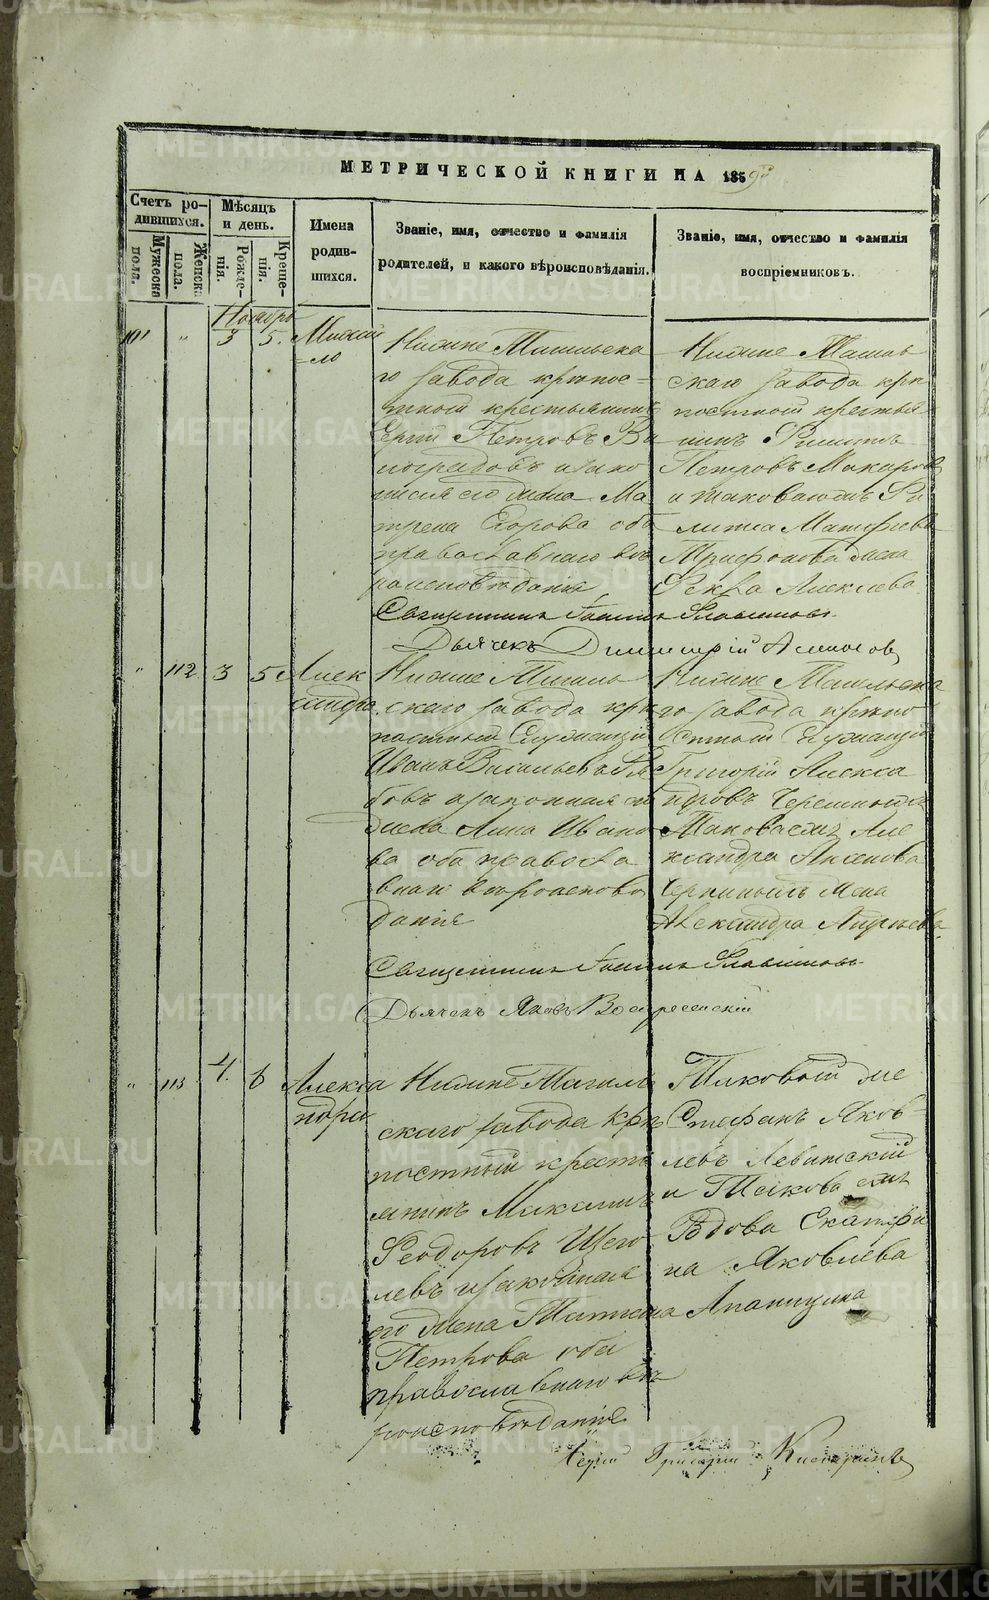 МЕТРИЧЕСКОЙ КНИГИ НА 1859
Счетъ ро-
дившихся.
Мѣсяцъ
и день.
Мужеска
пола.
Женска
пола.
Рожде-
нія.
Креще-
нія.
Имена
родив-
шихся.
Званіе, имя, отчество и фамилія
родителей, и какого вѣроисповѣданія.
Званіе, имя, отчество и фамилія
воспріемниковъ.
Ноябрь
3 5. Михаи
ло
Нижне Тагильска
го завода крѣпос=
тной крестьянинъ
Сергій Петровъ Ви
ноградовъ и зако
его жена Ма
трена Егорова оба
православнаго вѣ
роисповѣданія
Нижне Тагиль
скаго завода крѣ
постной крестья
нинъ Филиппъ
Петровъ Макаров
и
Трифонова жена
Фекла Алексѣева
Священникъ Іоаннъ Словцовъ
Дьячекъ Димитрій
" 112 3 5 Алек
сандра
Нижне Тагиль
скаго завода крѣ
постный Служащій
Иванъ Васильевъ
бовъ и законная его
жена Анна Ивано
ва оба правосла
внаго вѣроисповѣ
данія
Нижне Тагильска
го завода крѣпо
стной Служащій
Григорій Алекса
ндровъ
Таковаго же Але
ксандра Аксенова
жена
Александра Андреева
Священникъ Іоаннъ Словцовъ
Дьячекъ Яковъ Воскресенскій
" 113 4. 6 Алекса
ндра
Нижне Тагиль
скаго завода крѣ
постный кресть
янинъ Максимъ
Феодоровъ Щего
левъ и законная
его жена Татьяна
Петрова оба
православнаго вѣ
роисповѣданія
Таковый же
Стефанъ Яков-
левъ Левитскій
и
Вдова Екатери
на Яковлева
Апаницина
Іерей Григорій
METRIKI.GASO-URAL.RU